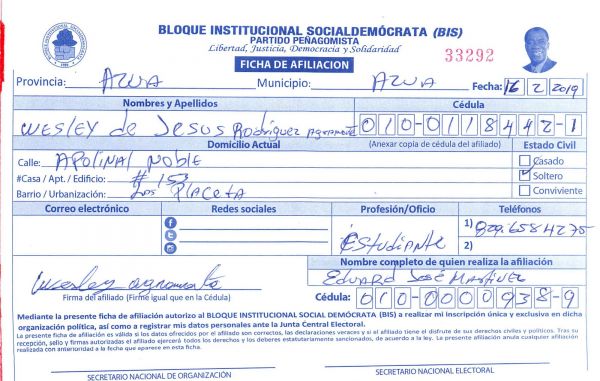 BLOQUE INSTITUCIONAL SOCIALDEMÓCRATA (BIS)
PARTIDO PEÑAGOMISTA
Libertad, Justicia, Democracia y Solidaridad
FICHA DE AFILIACION
33292
Provincia: AZUA Municipio: AZUA Fecha: 16 2 2019
Nombres y Apellidos Cédula
WESLEY de JESUS Rodriguez Agramonte 010-0118442-1
Domicilio Actual (Anexar copia de cédula del afiliado) Estado Civil
Calle: APOlINAl NOBLE Casado
#Casa / Apt. / Edificio: # 153 Soltero
Barrio / Urbanización: Los PlACETA Conviviente
Correo electrónico Redes sociales Profesión/Oficio Teléfonos
1) 829.6584275
EStudiANtE 2)
Nombre completo de quien realiza la afiliación
Wesley agramonte EDUARD JOSÉ MARTINEZ
Firma del afiliado (Firme igual que en la Cédula) Cédula: 010-0000938-9
Mediante la presente ficha de afiliación autorizo al BLOQUE INSTITUCIONAL SOCIAL DEMÓCRATA (BIS) a realizar mi inscripción única y exclusiva en dicha
organización política, así como a registrar mis datos personales ante la Junta Central Electoral.
La presente ficha de afiliación es válida si los datos ofrecidos por el afiliado son correctos, las declaraciones veraces y si el afiliado tiene el disfrute de sus derechos civiles y políticos. Tras su
recepción, sello y firmas autorizadas el afiliado ejercerá todos los derechos y los deberes estatutariamente sancionados, de acuerdo a la ley. La presente afiliación anula cualquier afiliación
realizada con anterioridad a la fecha que aparece en esta ficha.
SECRETARIO NACIONAL DE ORGANIZACIÓN SECRETARIO NACIONAL ELECTORAL